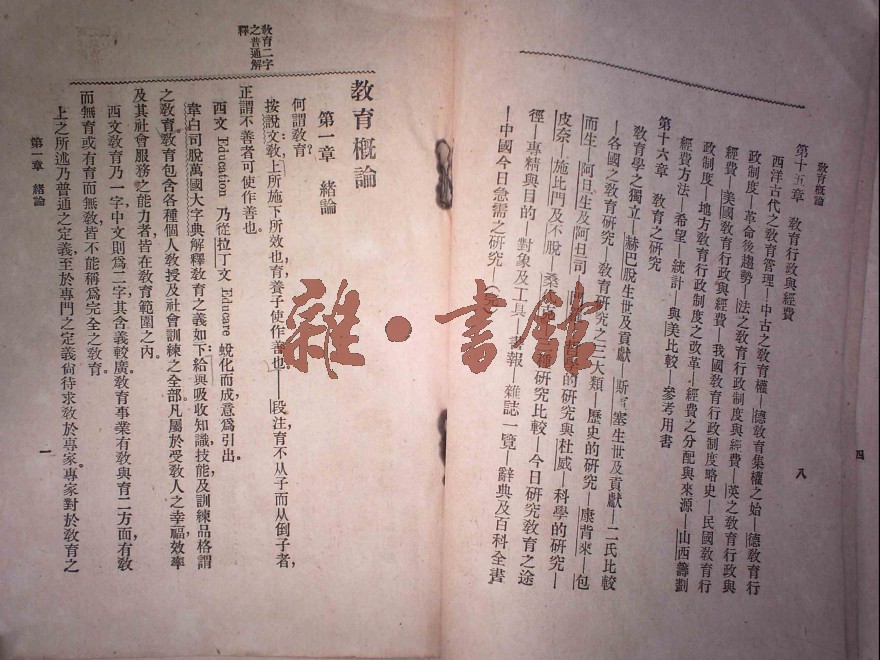 教育概論
八
四
第十五章　教育行政與經費
西洋古代之教育管理—中古之教育權—德教育集權之始—德教育行
政制度—革命後趨勢—法之教育行政制度與經費—英之教育行政與
經費—美國教育行政與經費—我國教育行政制度略史—民國教育行
政制度—地方教育行政制度之改革—經費之分配與來源—山西籌劃
經費方法—希望—統計—與美比較—參考用書
第十六章　教育之研究
教育學之獨立—赫巴脫生世及貢獻—斯賓塞生世及貢獻—二氏比較
—各國之教育研究—教育研究之三大類—歷史的研究—康背來—包
而生—阿旦生及阿旦司—的研究與杜威—科學的研究—
皮奈—施比門及不脫—桑研究比較—今日研究教育之途
徑—專精與目的—對象及工具—書報—雜誌一覽—辭典及百科全書
—中國今日急需之研究—
雜·書館
教育二字
之普通解
釋
教育概論
第一章　緒論
何謂教育？
按說文：教，上所施下所效也，育，養子使作善也。—段注，育不从子而从倒子者，
正謂不善者可使作善也。
西文 Education 乃從拉丁文 Educare 蛻化而成，意爲引出。
韋白司脫萬國大字典解釋教育之義如下：給與吸收知識，技能，及訓練品格謂
之教育。教育包含各種個人教授及社會訓練之全部。凡屬於受教人之幸福，效率
及其社會服務之能力者，皆在教育範圍之內。
西文教育乃一字，中文則爲二字，其含義較廣。教育事業有教與育二方面，有教
而無育或有育而無教，皆不能稱爲完全之教育。
上之所述，乃普通之定義，至於專門之定義，尙待求教於專家。專家對於教育之
第一章　緒論
一